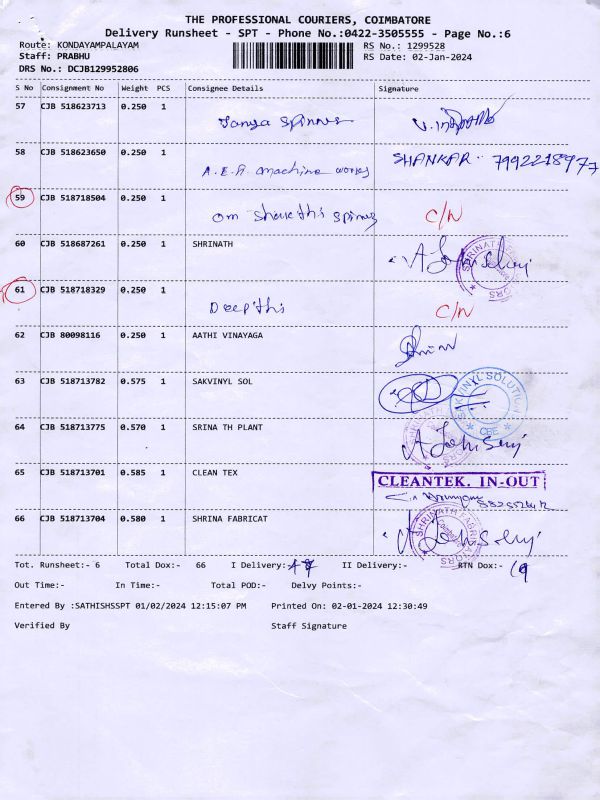 THE PROFESSIONAL COURIERS, COIMBATORE
Delivery Runsheet - SPT - Phone No.:0422-3505555 - Page No.:6
Route: KONDAYAMPALAYAM RS No.: 1299528
Staff: PRABHU RS Date: 02-Jan-2024
DRS No.: DCJB129952806
S No Consignment No Weight PCS Consignee Details Signature
57 CJB 518623713 0.250 1 Tanya Spinners
58 CJB 518623650 0.250 1 A.E.A. machine works SHANKAR. 7992218977
59 CJB 518718504 0.250 1 Om Shakthi Spinng C/N
60 CJB 518687261 0.250 1 SHRINATH
61 CJB 518718329 0.250 1 Deepthi C/N
62 CJB 80098116 0.250 1 AATHI VINAYAGA
63 CJB 518713782 0.575 1 SAKVINYL SOL
CBE
64 CJB 518713775 0.570 1 SRINA TH PLANT
65 CJB 518713701 0.585 1 CLEAN TEX CLEANTEK. IN-OUT
66 CJB 518713704 0.580 1 SHRINA FABRICAT
SHRINATH FABRICATORS
Tot. Runsheet:- 6 Total Dox:- 66 I Delivery:- 47 II Delivery:- RTN Dox:- 19
Out Time:- In Time:- Total POD:- Delvy Points:-
Entered By :SATHISHSSPT 01/02/2024 12:15:07 PM Printed On: 02-01-2024 12:30:49
Verified By Staff Signature